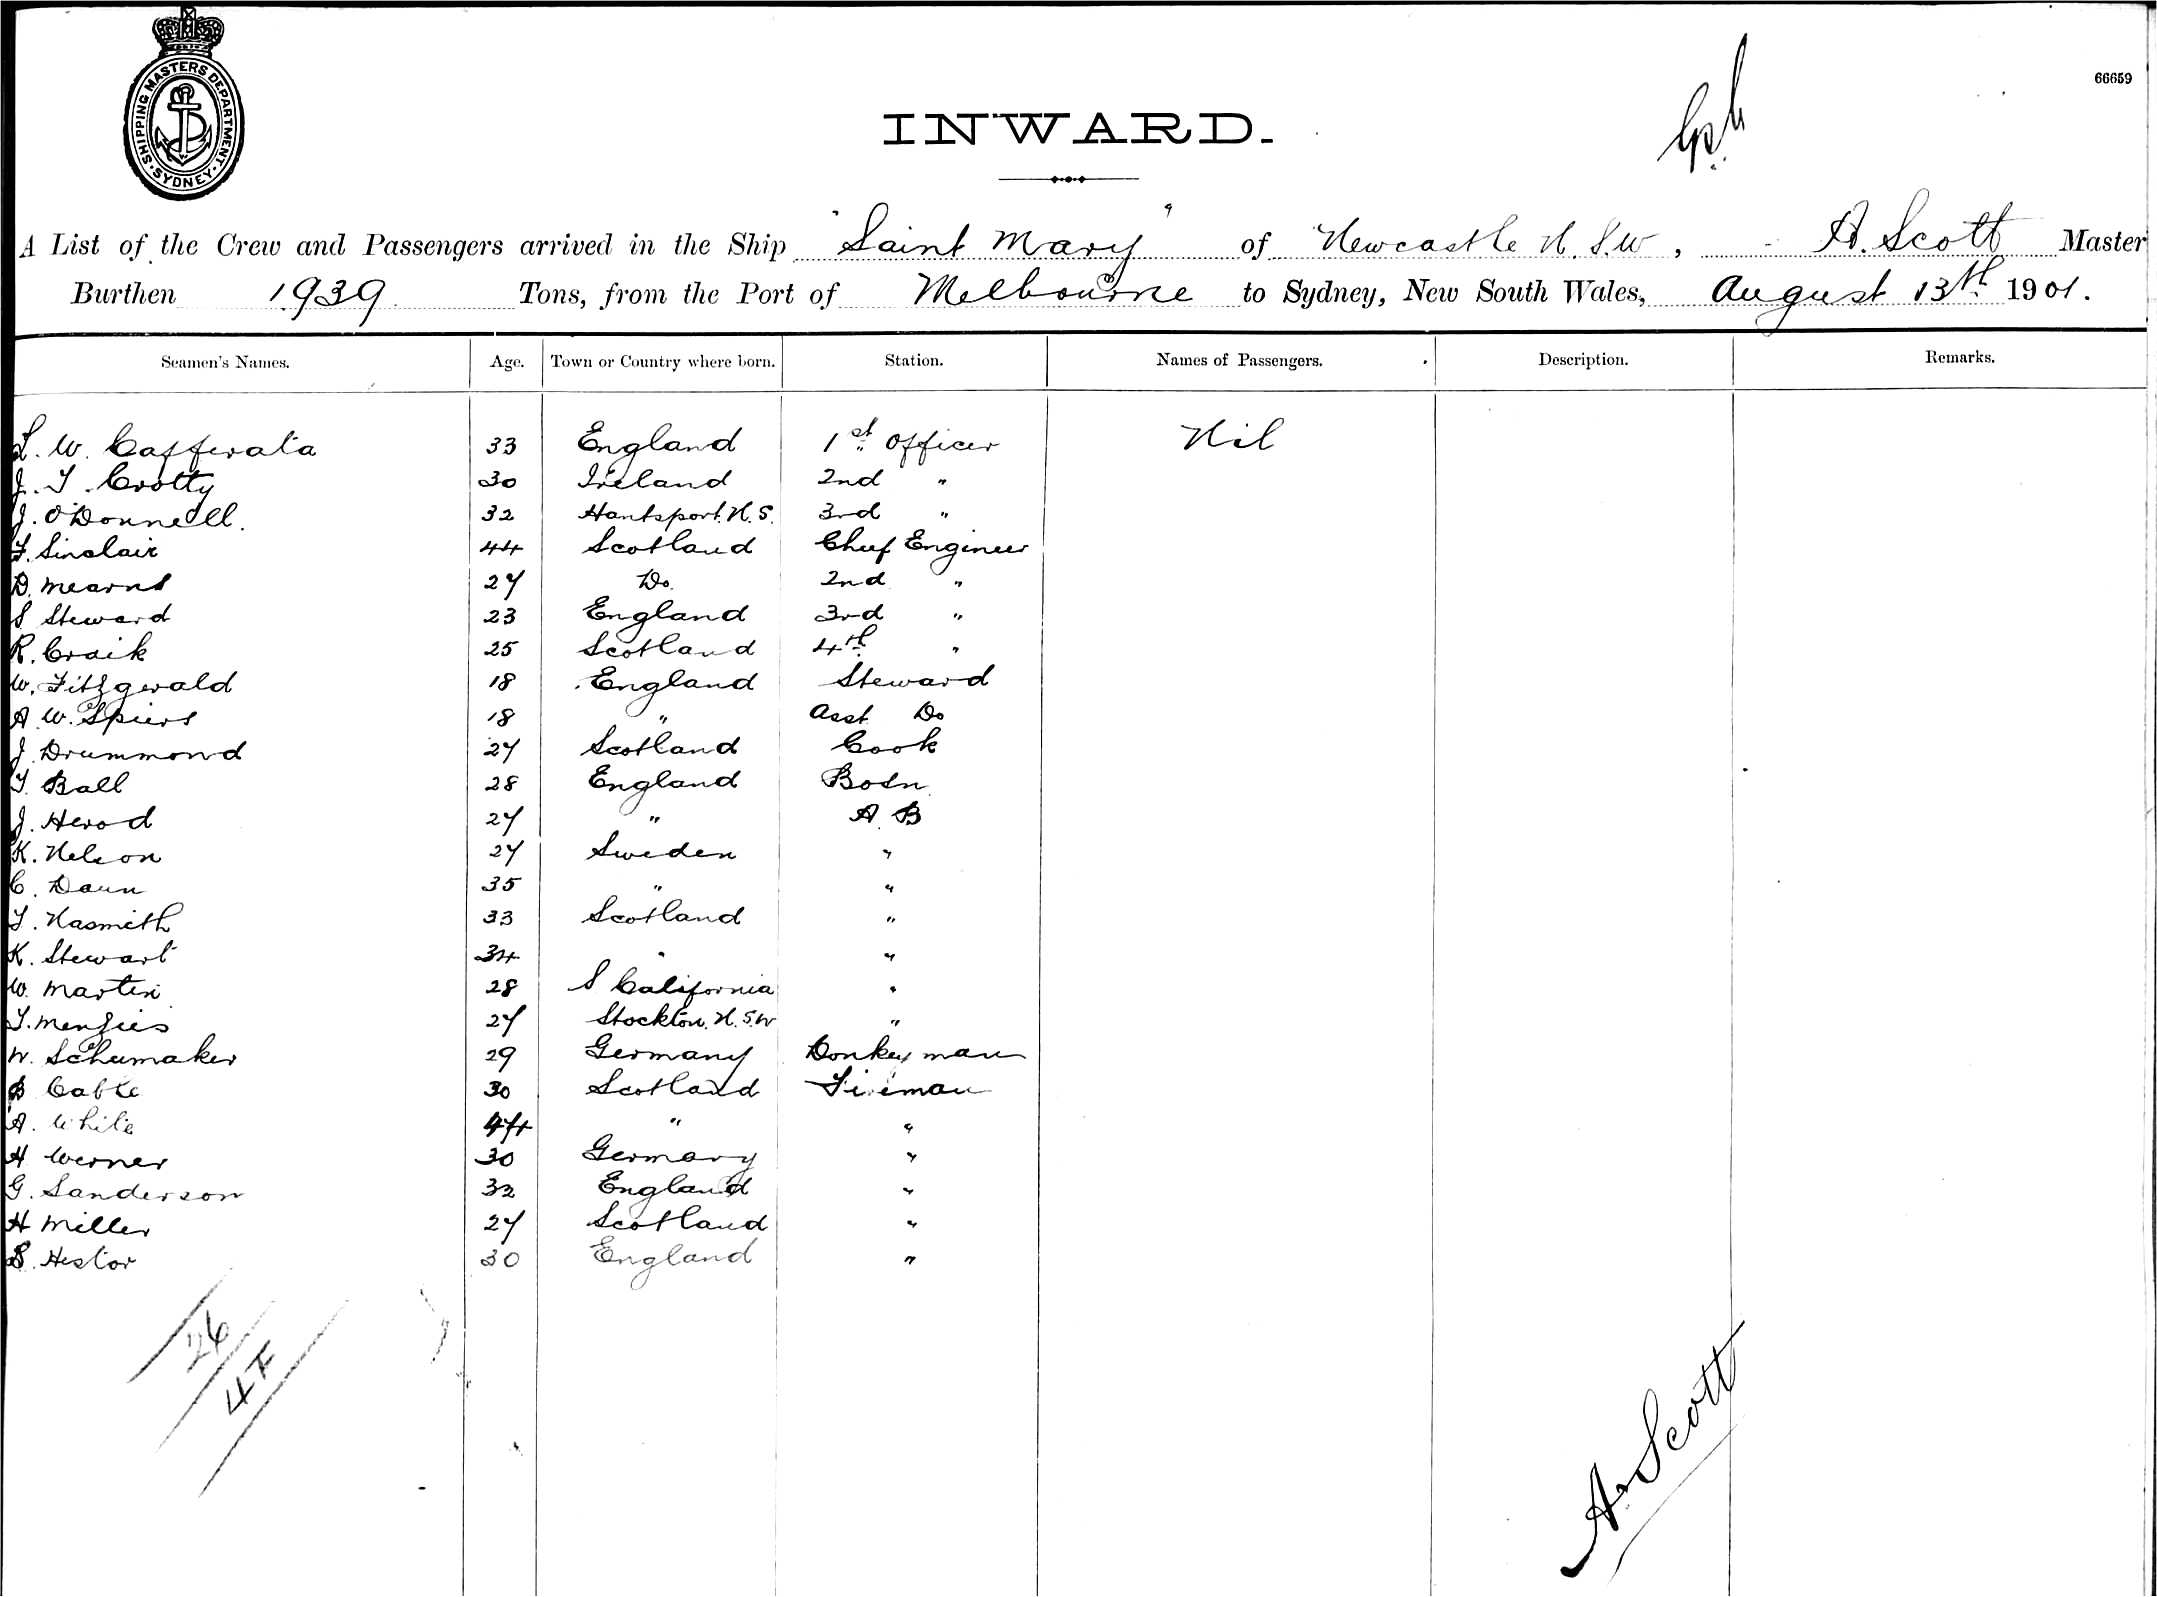 SHIPPING MASTERS DEPARTMENT. SYDNEY.
66659
INWARD.
A List of the Crew and Passengers arrived in the Ship "Saint Mary" of Newcastle N.S.W, A. Scott Master
Burthen 1939 Tons, from the Port of Melbourne to Sydney, New South Wales, August 13th 1901.
Seamen's Names. Age. Town or Country where born. Station. Names of Passengers. Description. Remarks.
L. W. Cafferata 33 England 1st Officer Nil
J. T. Crotty 30 Ireland 2nd "
J. O'Donnell. 32 Hantsport. N. S. 3rd "
F. Sinclair 44 Scotland Chief Engineer
D. Mearns 27 Do. 2nd "
S Steward 23 England 3rd "
R. Craik 25 Scotland 4th "
W. Fitzgerald 18 England Steward
A W. Spiers 18 " Asst Do
J Drummond 27 Scotland Cook
T. Ball 28 England Bosn
J. Herod 27 " A. B
K. Nelson 27 Sweden "
C. Daun 35 " "
T. Nasmith 33 Scotland "
K. Stewart 34 " "
W. Martin 28 S California "
T. Menzies 27 Stockton. N.S.W "
W. Schumaker 29 Germany Donkeyman
Cable 30 Scotland Fireman
A. White " "
H Werner 30 Germany "
G. Sanderson 32 England "
H Miller 27 Scotland "
S. Hestor 30 England "
26
4F
A. Scott